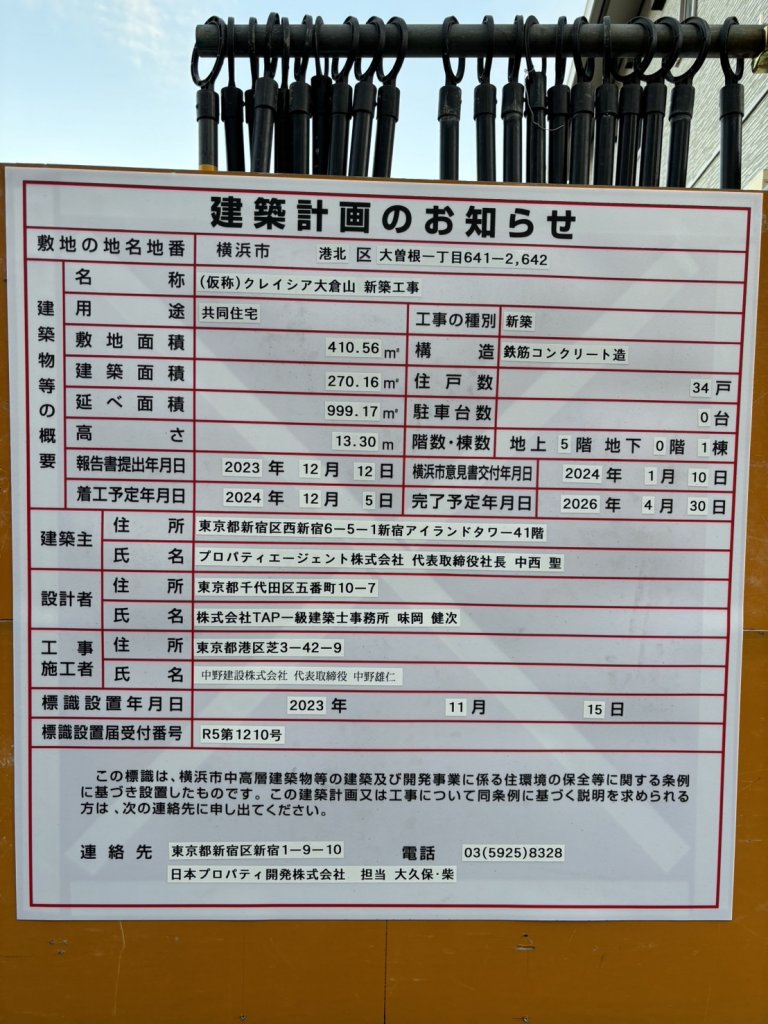 建築計画のお知らせ
敷地の地名地番 横浜市 港北 区 大曽根一丁目641－2,642
建築物等の概要
名称 (仮称)クレイシア大倉山 新築工事
用途 共同住宅 工事の種別 新築
敷地面積 410.56 ㎡ 構造 鉄筋コンクリート造
建築面積 270.16 ㎡ 住戸数 34 戸
延べ面積 999.17 ㎡ 駐車台数 0 台
高さ 13.30 m 階数・棟数 地上 5 階 地下 0 階 1 棟
報告書提出年月日 2023 年 12 月 12 日 横浜市意見書交付年月日 2024 年 1 月 10 日
着工予定年月日 2024 年 12 月 5 日 完了予定年月日 2026 年 4 月 30 日
建築主 住所 東京都新宿区西新宿6－5－1新宿アイランドタワー41階
氏名 プロパティエージェント株式会社 代表取締役社長 中西 聖
設計者 住所 東京都千代田区五番町10－7
氏名 株式会社TAP一級建築士事務所 味岡 健次
工事施工者 住所 東京都港区芝3－42－9
氏名 中野建設株式会社 代表取締役 中野雄仁
標識設置年月日 2023 年 11 月 15 日
標識設置届受付番号 R5第1210号
この標識は、横浜市中高層建築物等の建築及び開発事業に係る住環境の保全等に関する条例
に基づき設置したものです。この建築計画又は工事について同条例に基づく説明を求められる
方は、次の連絡先に申し出てください。
連絡先 東京都新宿区新宿1－9－10 電話 03(5925)8328
日本プロパティ開発株式会社 担当 大久保・柴